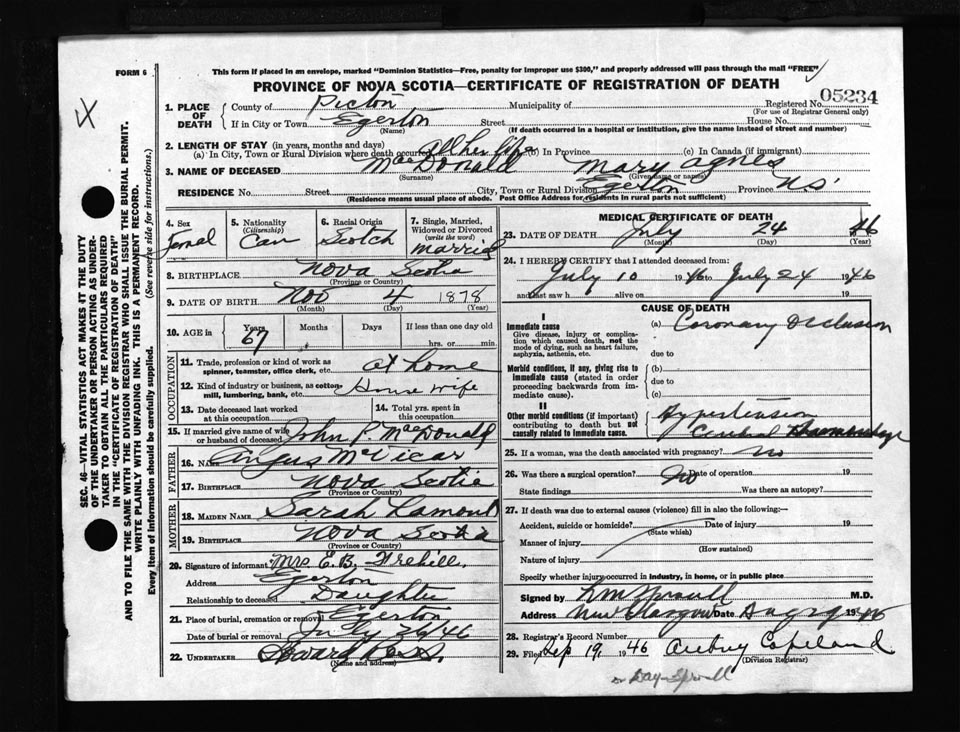 FORM 6
This form if placed in an envelope, marked "Dominion Statistics—Free, penalty for improper use $300," and properly addressed will pass through the mail "FREE"
PROVINCE OF NOVA SCOTIA—CERTIFICATE OF REGISTRATION OF DEATH
1. PLACE OF DEATH
County of Pictou Municipality of Registered No. 05234
(For use of Registrar General only)
If in City or Town Egerton Street House No.
(Name) (If death occurred in a hospital or institution, give the name instead of street and number)
2. LENGTH OF STAY (in years, months and days)
(a) In City, Town or Rural Division where death occurred all her life (b) In Province (c) In Canada (if immigrant)
3. NAME OF DECEASED MacDonald Mary Agnes
(Surname) (Given name or names)
RESIDENCE No. Street City, Town or Rural Division Egerton Province N.S.
(Residence means usual place of abode. Post Office Address for residents in rural parts not sufficient)
4. Sex
Femal
5. Nationality
(Citizenship)
Can
6. Racial Origin
Scotch
7. Single, Married, Widowed or Divorced
(write the word)
Married
8. BIRTHPLACE Nova Scotia
(Province or Country)
9. DATE OF BIRTH Nov 4 1878
(Month) (Day) (Year)
10. AGE in Years Months Days If less than one day old
67 hrs. or min.
OCCUPATION
11. Trade, profession or kind of work as spinner, teamster, office clerk, etc. at home
12. Kind of industry or business, as cotton-mill, lumbering, bank, etc. House wife
13. Date deceased last worked at this occupation
14. Total yrs. spent in this occupation
15. If married give name of wife or husband of deceased John P. MacDonald
FATHER
16. NAME Angus McVicar
17. BIRTHPLACE Nova Scotia
(Province or Country)
MOTHER
18. MAIDEN NAME Sarah Lamont
19. BIRTHPLACE Nova Scotia
(Province or Country)
20. Signature of informant Mrs E. B.
Address Egerton
Relationship to deceased Daughter
21. Place of burial, cremation or removal Egerton
Date of burial or removal July 26 46
22. UNDERTAKER
(Name and address)
MEDICAL CERTIFICATE OF DEATH
23. DATE OF DEATH July 24 46
(Month) (Day) (Year)
24. I HEREBY CERTIFY that I attended deceased from:
July 10 1946 to July 24 1946
and last saw h alive on 19
CAUSE OF DEATH
I
Immediate cause
Give disease, injury or complication which caused death, not the mode of dying, such as heart failure, asphyxia, asthenia, etc.
(a) Coronary Occlusion
due to
Morbid conditions, if any, giving rise to immediate cause (stated in order proceeding backwards from immediate cause).
(b)
due to
(c)
II
Other morbid conditions (if important) contributing to death but not causally related to immediate cause.
Hypertension
Cerebral Haemorrhage
25. If a woman, was the death associated with pregnancy? no
26. Was there a surgical operation? No Date of operation 19
State findings Was there an autopsy?
27. If death was due to external causes (violence) fill in also the following:—
Accident, suicide or homicide? Date of injury 19
(State which)
Manner of injury
(How sustained)
Nature of injury
Specify whether injury occurred in industry, in home, or in public place
Signed by M.D.
Address New Glasgow Date 1946
28. Registrar's Record Number
29. Filed Sep 19, 1946 Aubrey Copeland
(Division Registrar)
SEC. 46—VITAL STATISTICS ACT MAKES IT THE DUTY
OF THE UNDERTAKER OR PERSON ACTING AS UNDER-
TAKER TO OBTAIN ALL THE PARTICULARS REQUIRED
IN THE "CERTIFICATE OF REGISTRATION OF DEATH"
AND TO FILE THE SAME WITH THE DIVISION REGISTRAR WHO SHALL ISSUE THE BURIAL PERMIT.
WRITE PLAINLY WITH UNFADING INK. THIS IS A PERMANENT RECORD.
Every item of Information should be carefully supplied. (See reverse side for instructions.)